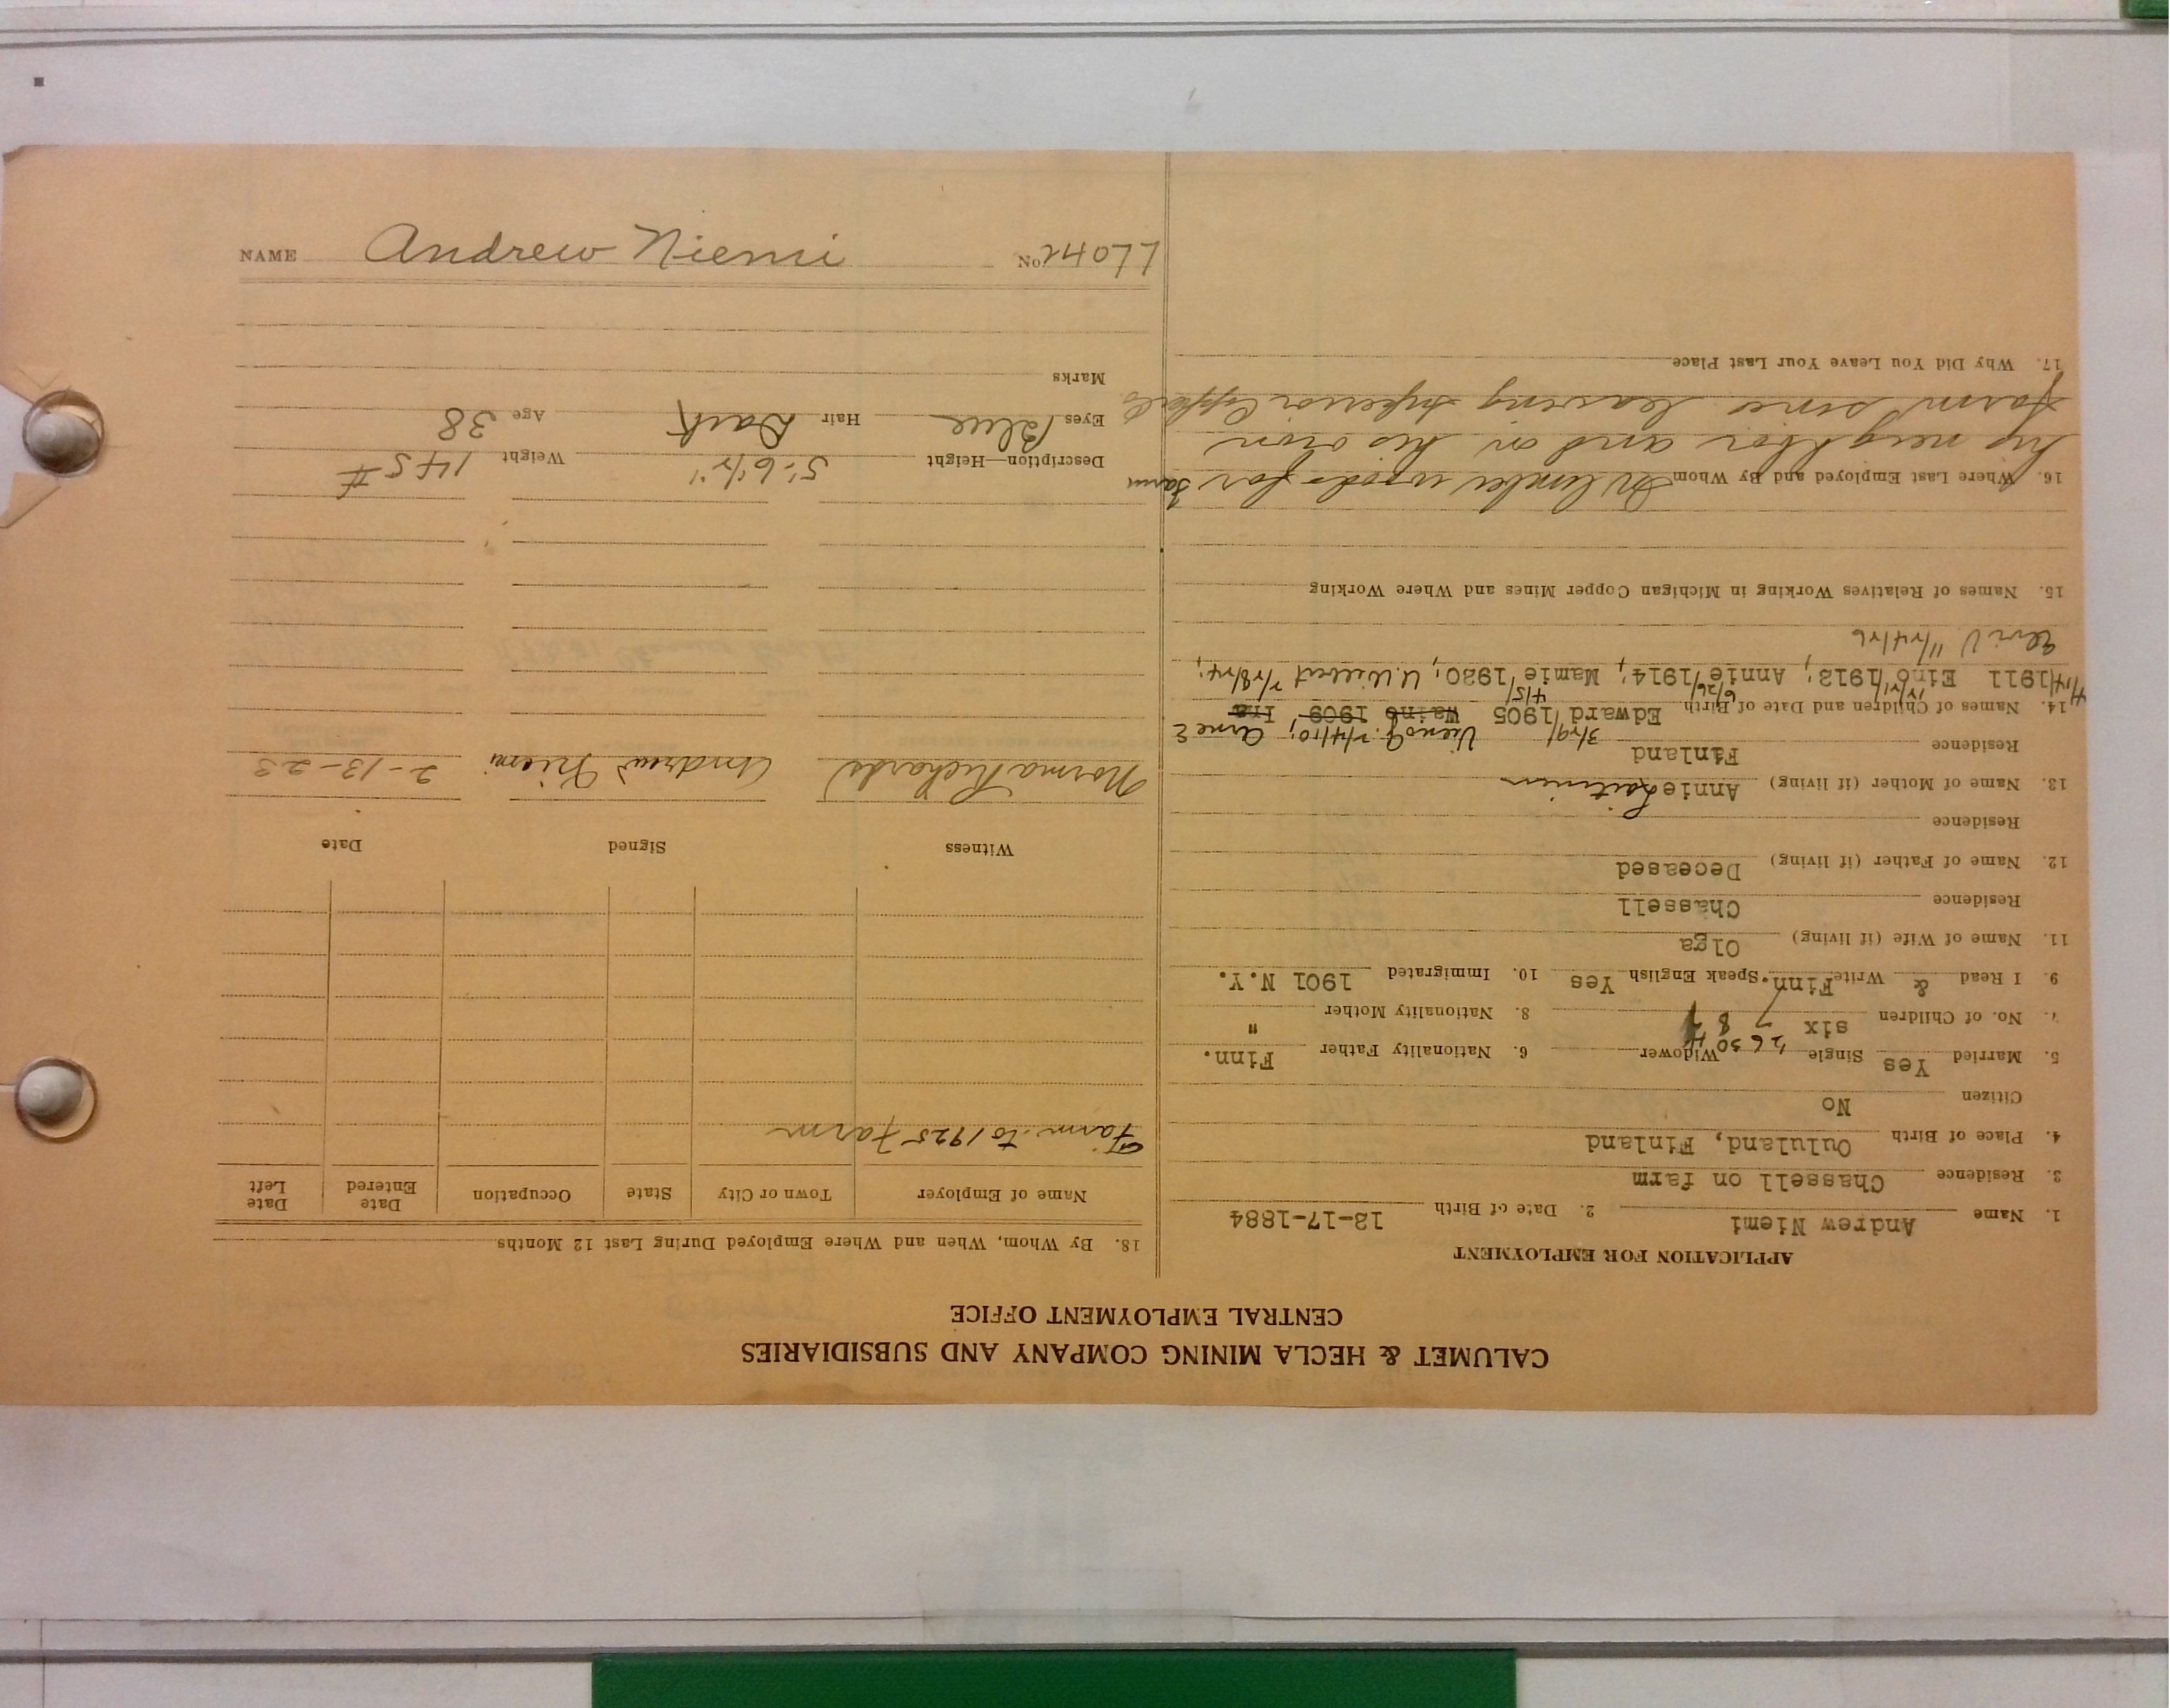 CALUMET & HECLA MINING COMPANY AND SUBSIDIARIES
CENTRAL EMPLOYMENT OFFICE
APPLICATION FOR EMPLOYMENT
1. Name Andrew Niemi 2. Date of Birth 12-17-1884
3. Residence Chassell on farm
4. Place of Birth Oululand, Finland
Citizen No
5. Married Yes Single Widower 6. Nationality Father Finn.
'26 30
7. No. of Children six 7 8 8. Nationality Mother "
9. I Read & Write Finn. Speak English Yes 10. Immigrated 1901 N.Y.
11. Name of Wife (if living) Olga
Residence Chassell
12. Name of Father (if living) Deceased
Residence
13. Name of Mother (if living) Annie
Residence Finland
3/29/ Vieno J. 2/4/10; Arne E
14. Names of Children and Date of Birth Edward/1905 Waino 1909, Ira
4/14/ 12/21/ 6/26/ 4/5/
1911 Eino/1913; Annie/1914; Mamie/1920; U. Wilbert 2/28/24;
11/24/26
15. Names of Relatives Working in Michigan Copper Mines and Where Working
16. Where Last Employed and By Whom In lumber woods for
his neighbor and on his own farm
farm since leaving Superior
17. Why Did You Leave Your Last Place
18. By Whom, When and Where Employed During Last 12 Months
Name of Employer Town or City State Occupation Date Entered Date Left
Farm to 1925 Farm
Witness Signed Date
Norma Richards Andrew Niemi 2-13-23
Description—Height 5' 6 1/2" Weight 145 #
Eyes Blue Hair Dark Age 38
Marks
NAME Andrew Niemi No.